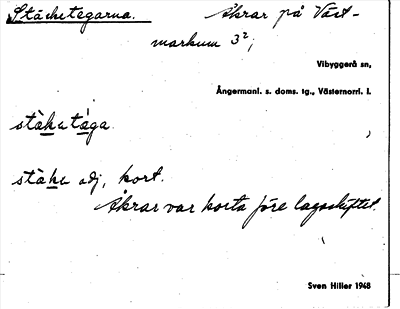 Stäcketegarna. Åkrar på Väst-
markum 3²,
Vibyggerå sn,
Ångermanl. s. doms. tg., Västernorrl. l.
stàkatàga
stàka adj, kort.
Åkrar var korta före lagaskiftet.
Sven Hiller 1948